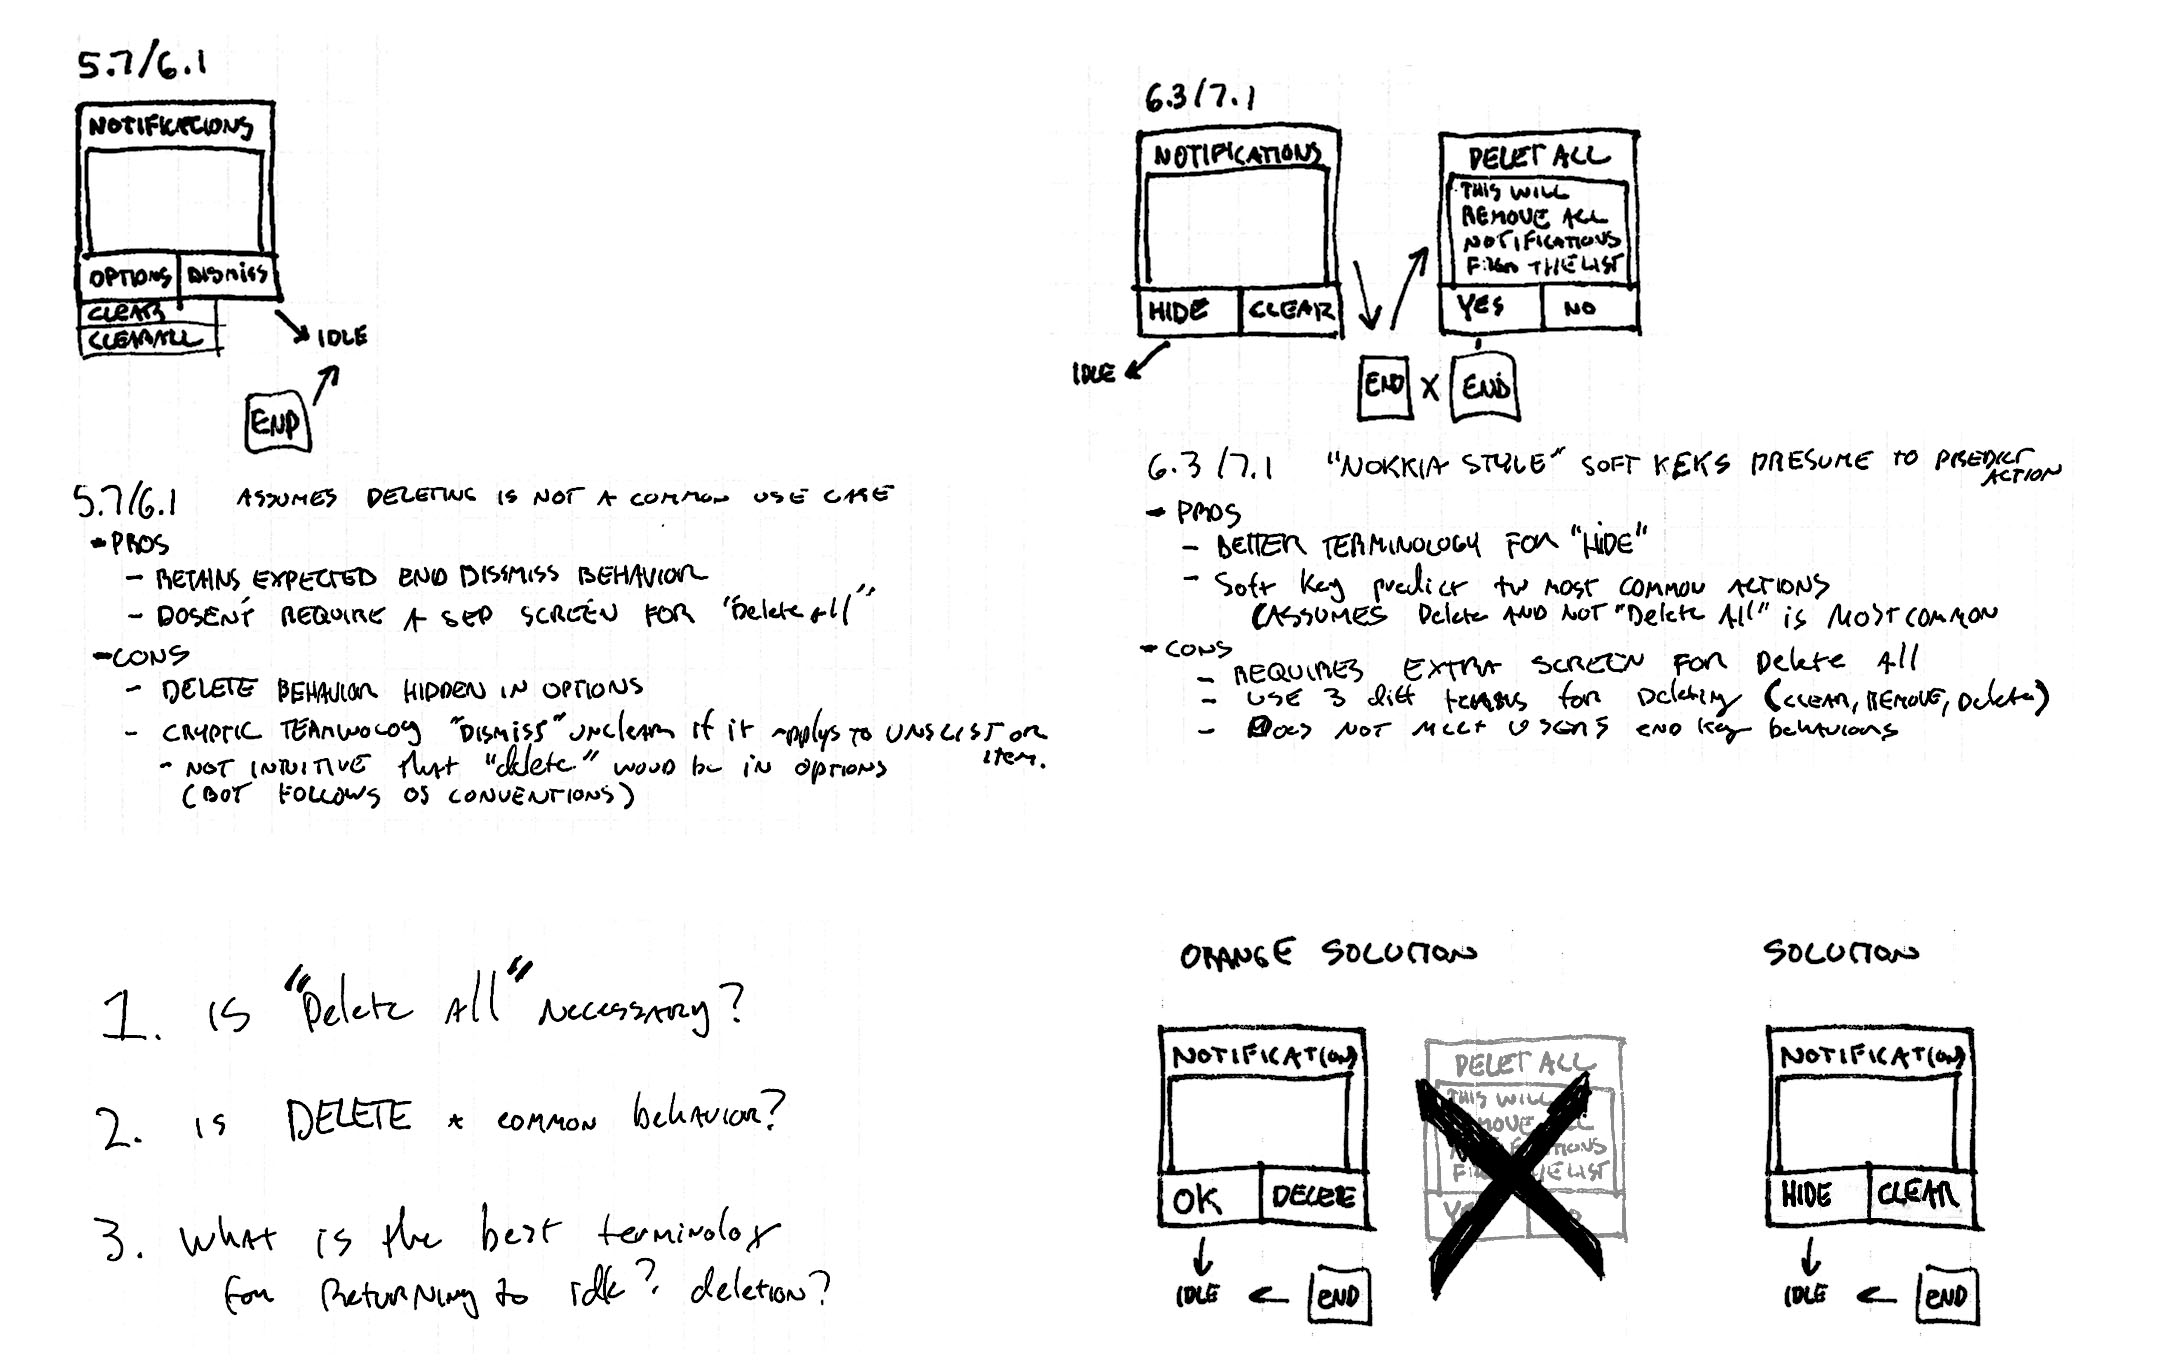 5.7/6.1
NOTIFICATIONS
OPTIONS DISMISS
CLEAR
CLEAR ALL
IDLE
END
5.7/6.1 ASSUMES DELETING IS NOT A COMMON USE CASE
- PROS
- RETAINS EXPECTED END DISSMISS BEHAVIOR
- DOSENT REQUIRE A SEP SCREEN FOR "Delete All"
- CONS
- DELETE BEHAVIOR HIDDEN IN OPTIONS
- CRYPTIC "DISMISS" UNCLEAR if it applys to OR item.
- NOT INTUITIVE that "delete" would be in options
(BUT FOLLOWS OS CONVENTIONS)
6.3/7.1
NOTIFICATIONS
HIDE CLEAR
IDLE
DELET ALL
THIS WILL
REMOVE ALL
NOTIFICATIONS
FROM THE LIST
YES NO
END X END
6.3/7.1 "NOKKIA STYLE" SOFT KEYS PRESUME TO PREDICT ACTION
- PROS
- BETTER TERMINOLOGY FOR "HIDE"
- Soft Key predict tw most COMMON ACTIONS
(ASSUMES Delete AND NOT "Delete All" is MOST COMMON
- CONS
- REQUIRES EXTRA SCREEN FOR Delete All
- USE 3 diff terms for Deleting (CLEAR, REMOVE, Delete)
- Does NOT MEET USERS END Key behaviors
1. is "Delete All" Necessary?
2. is DELETE a common behavior?
3. What is the best terminology
for Returning to idle? deletion?
ORANGE SOLUTION
NOTIFICATION
OK DELETE
IDLE ← END
DELET ALL
THIS WILL
REMOVE ALL
NOTIFICATIONS
FROM THE LIST
YES NO
SOLUTION
NOTIFICATION
HIDE CLEAR
IDLE ← END